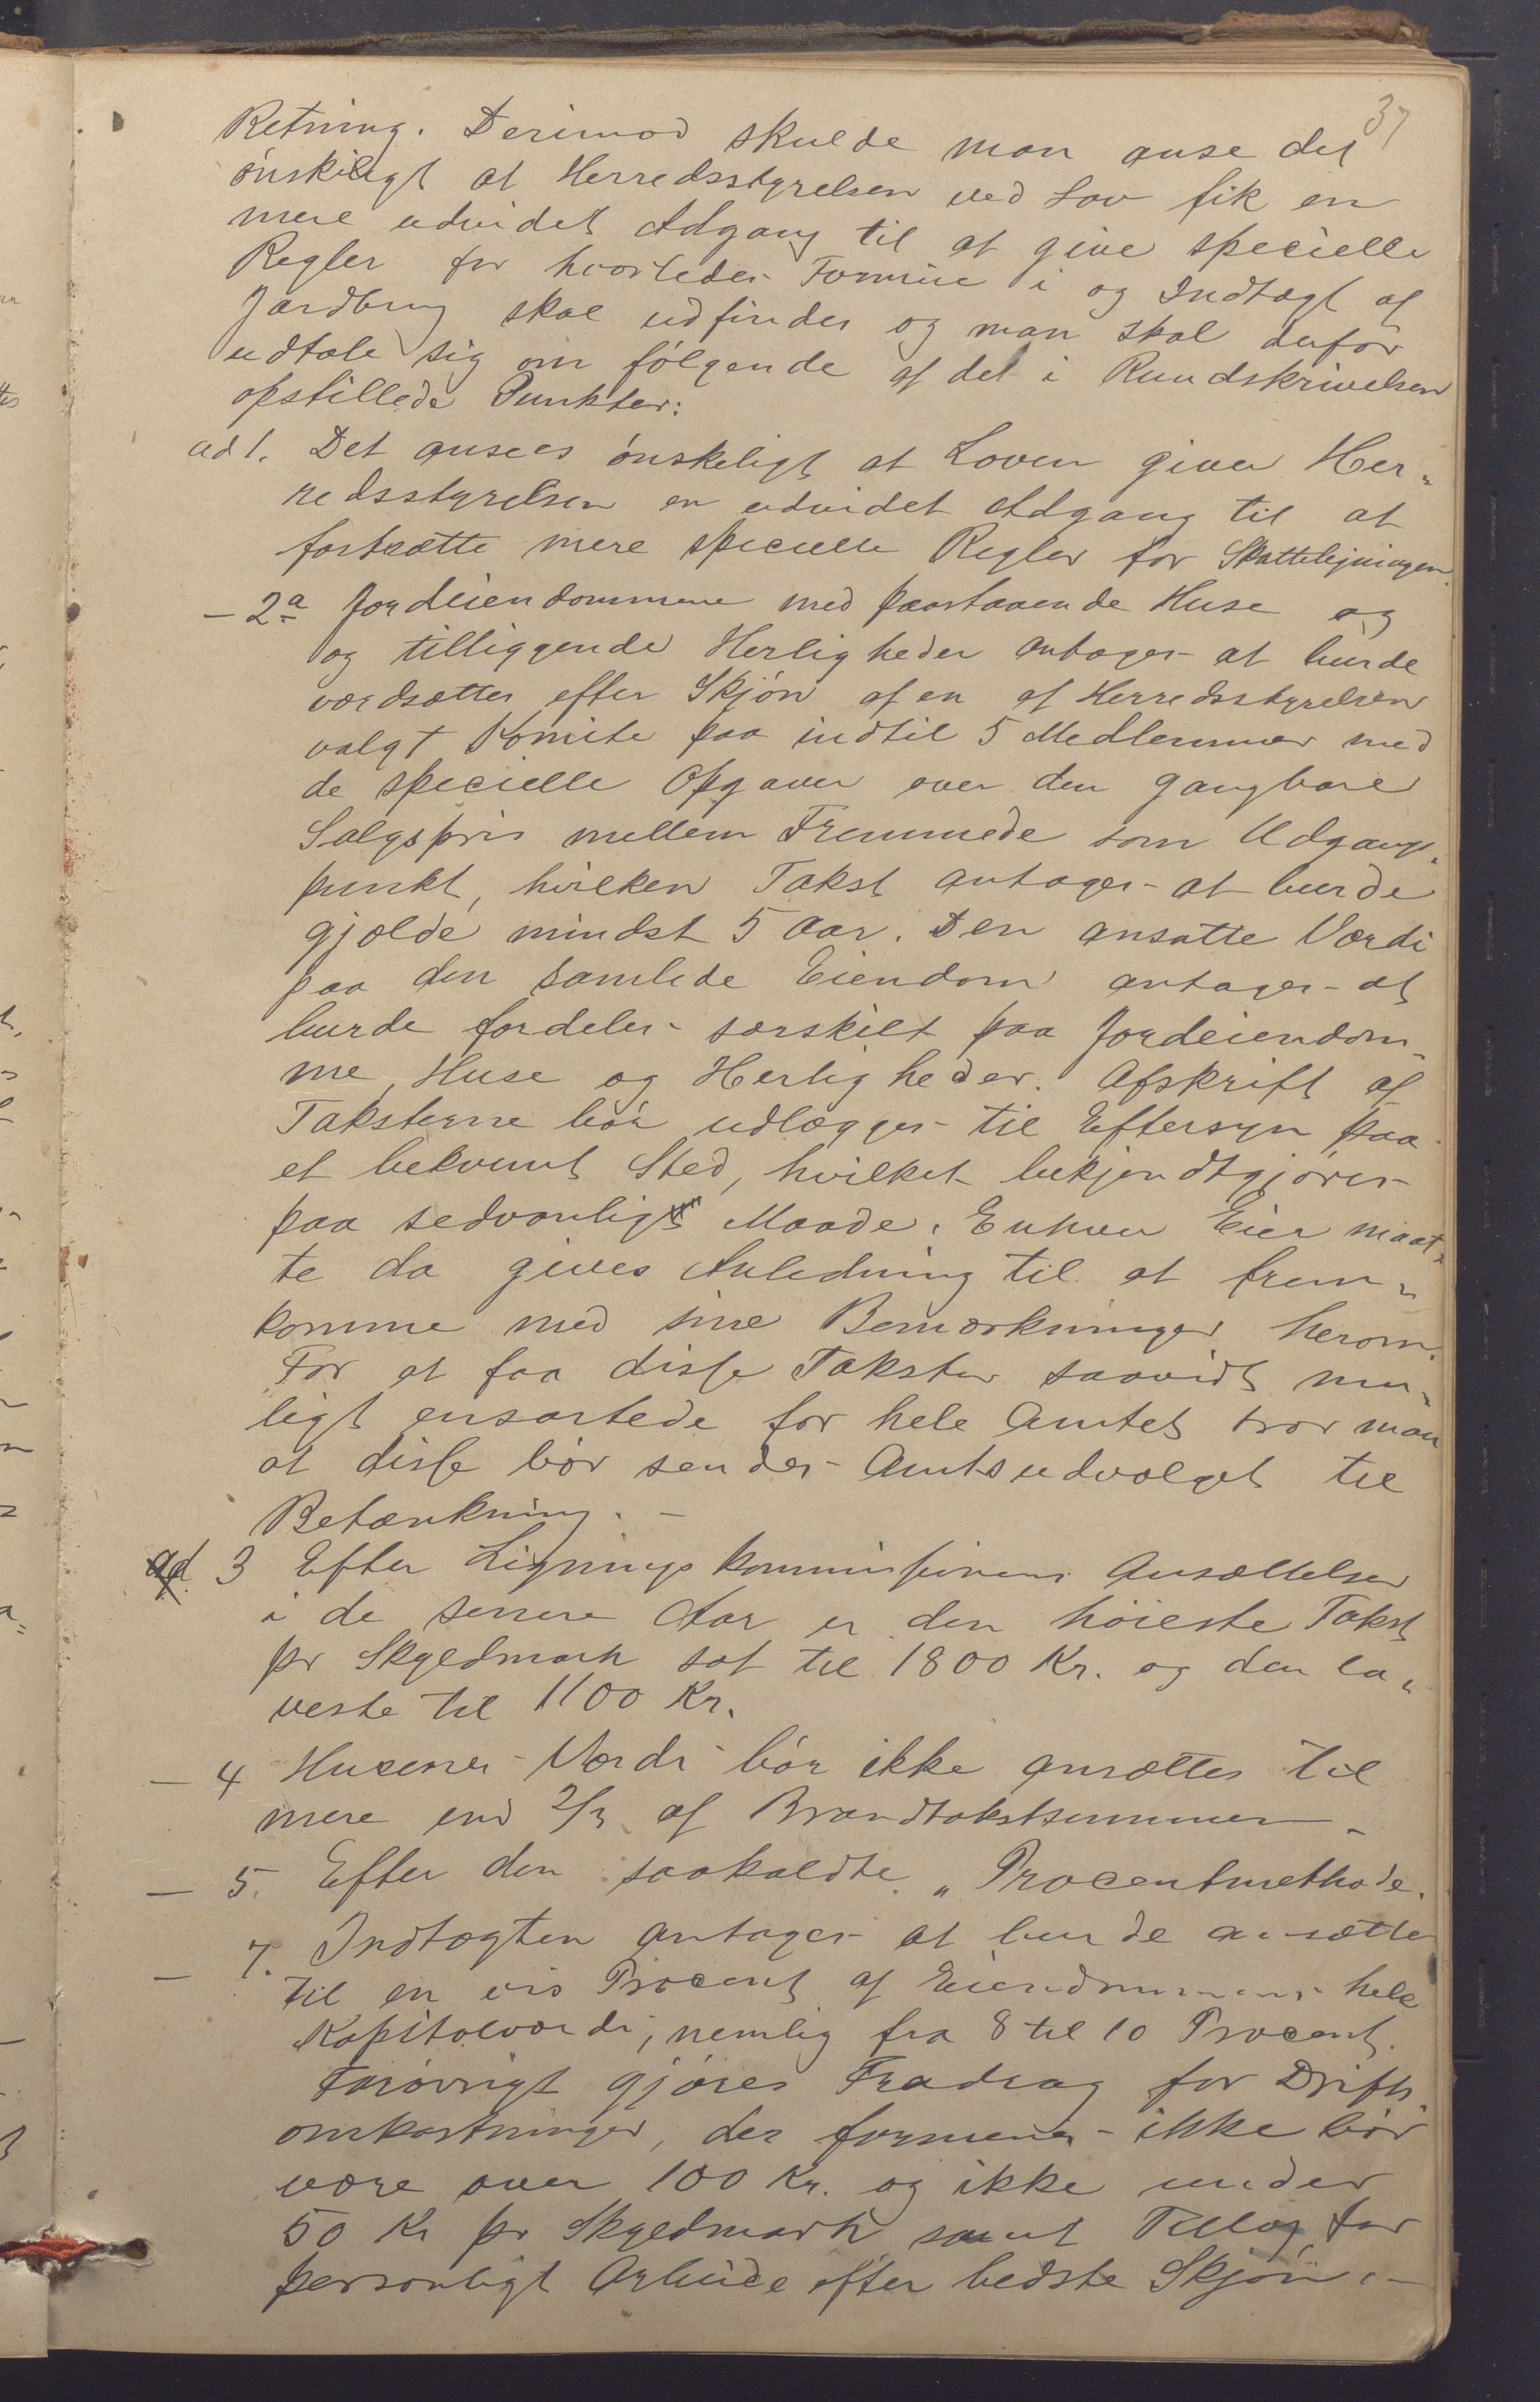 37
Retning. Derimod skulde man anse det
ønskeligt at Herredsstyrelsen ved Lov fik en
mere udvidet Adgang til at give specielle
Regler for hvorledes Formue i og Indtægt af
Jordbrug skal udfindes og man skal derfor
udtale sig om følgende af det i Rundskrivelsen
opstillede Punkter:
ad 1. Det ansees ønskeligt at Loven giver Her-
redsstyrelsen en udvidet Adgang til at
fastsætte mere specielle Regler for Skatteligningen.
- 2a Jordeiendommene med paastaaende Huse og
og tilliggende Herligheder antages at burde
værdsættes efter Skjøn af en af Herredsstyrelsen
valgt Komite paa indtil 5 Medlemmer med
de specielle Opgaver over den gangbare
Salgspris mellem Fremmede som Udgangs-
punkt, hvilken Takst antages at burde
gjælde mindst 5 Aar. Den ansatte Værdi
paa den samlede Eiendom antages at
burde fordeles særskilt paa Jordeiendom-
me, Huse og Herligheder. Afskrift af
Taksterne bør udlægges til Eftersyn paa
et bekvemt Sted, hvilket bekjendtgjøres
paa sedvanlig Maade. Enhver Eier maat-
te da gives Anledning til at frem-
komme med sine Bemærkninger herom.
For at faa disse Takster saavidt mu-
ligt ensartede for hele Amtet tror man
at disse bør sendes Amtsudvalget til
Betænkning. -
ad. 3 Efter Ligningskommissionens Ansættelser
i de senere Aar er den høieste Takst
pr Skyldmark sat til 1800 Kr. og den la-
veste til 1100 Kr.
- 4 Husenes Værdi bør ikke ansættes til
mere end 2/3 af Brandtakstsummen.
- 5. Efter den saakaldte „Procentmethode.
- 7. Indtægten antages at burde ansættes
til en vis Procent af Eiendommens hele
Kapitalværdi, nemlig fra 8 til 10 Procent.
Forøvrigt gjøres Fradrag for Drifts
omkostninger, der formenes ikke bør
være over 100 Kr. og ikke under
50 Kr pr Skyldmark samt Tillæg for
personligt Arbeide efter bedste Skjøn. -